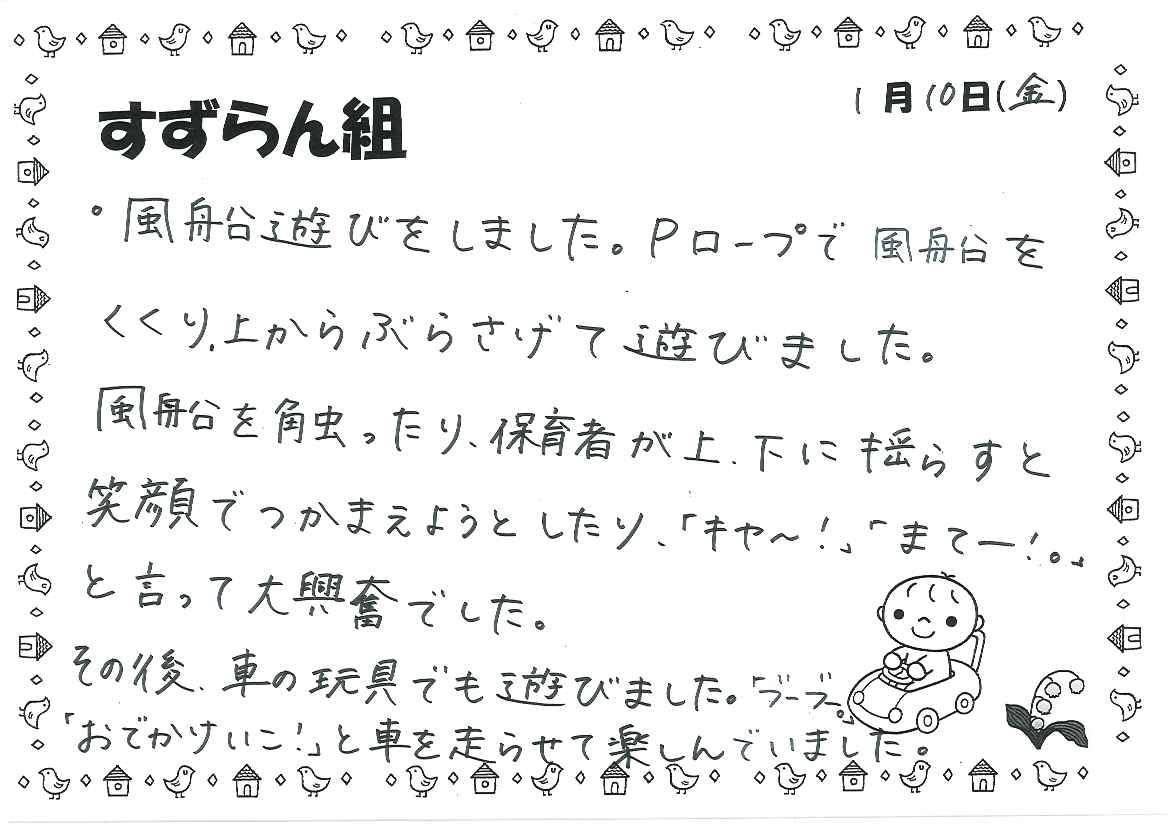 1月10日(金)
すずらん組
・風船遊びをしました。Pロープで風船を
くくり、上からぶらさげて遊びました。
風船を触ったり、保育者が上、下に揺らすと
笑顔でつかまえようとしたり、「キャ〜!」「まてー!。」
と言って大興奮でした。
その後、車の玩具でも遊びました。「ブーブー。」
「おでかけいこ!」と車を走らせて楽しんでいました。